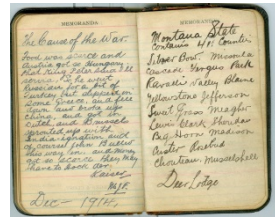 MEMORANDA.
The Cause of the War.
Food was scarce and
Austria got so Hungary
that
Servia. So he went
Russian for a bit of
Turkey but slipped in
some Greece, and fell
upon and broke up
China, and got so
cuted and Brussels
sprouted up with
Indian-ignation and
of course John Bull
this way in and things
got so
have to Dock der
Kaiser
Dec - 1914.
MEMORANDA.
Montana State
contains 41 Counties
Silver Bow. Missoula
Cascade Fergus Park
Ravalli Valley Blaine
Yellowstone Jefferson
Sweet Grass Meagher
Lewis Clark Sheridan
Big Horn Madison
Custer Rosebud
Chouteau Musselshell
Deer Lodge